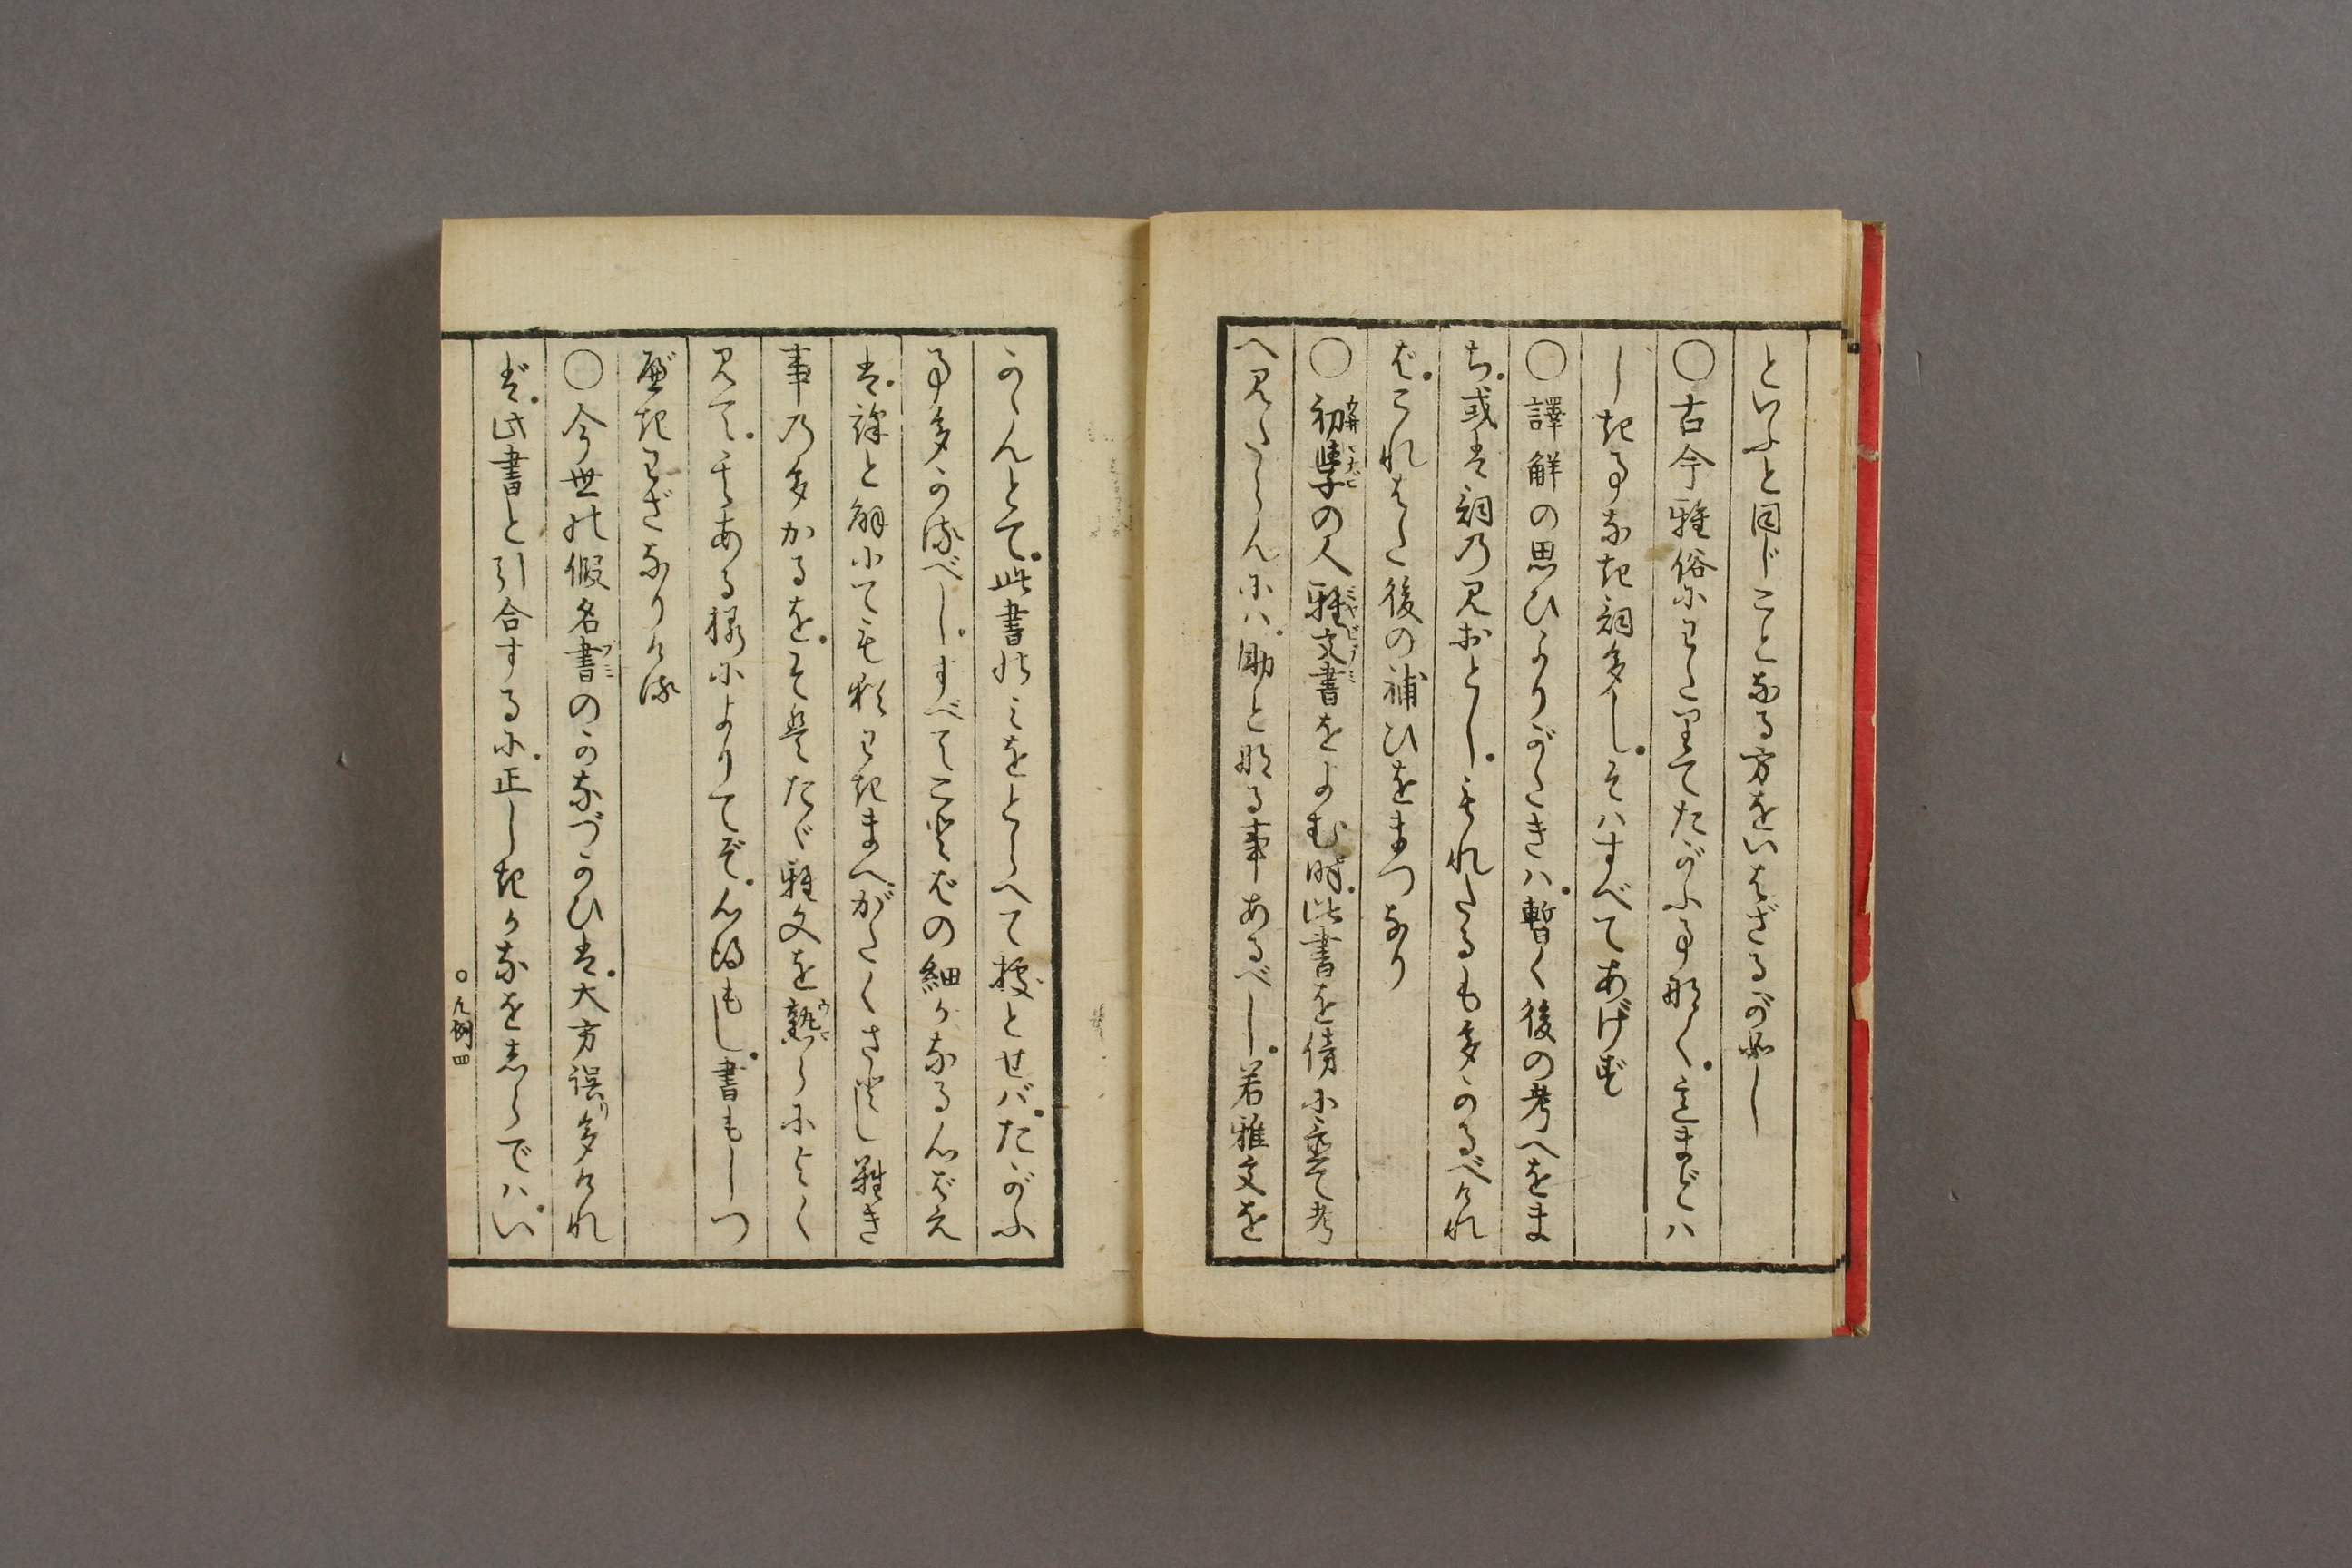 といふと同じことなる方をいはざるが如し
〇古今雅俗にわたりてたがふ事なく。まどは
しきことなき詞多し。そハすべてあげず
〇譯解の思ひよりがたきハ。暫く後の考へをま
ち。或は詞の見おとし。もれたるも多かるべけれ
ば。これはた後の補ひをまつなり
〇初學の人雅文書をよむ時。此書を傍に置て考
へ見たらんにハ。助と那る事あるべし。若雅文を
かゝんとて。此書のみをとらへて據とせバ。たがふ
事多かるべし。すべてことばの細かなる心ばえ
は。譯と解にても猶わきまへがたくさとし難き
事の多かるを。そはたゞ雅文を熟らによく
見て。其ある様によりてぞ。心得もし。書もしつ
べきわざなりける
〇今世の假名書のかなづかひは。大方誤り多けれ
ば。此書と引合するに。正しきかなをしらでハ。い
〇凡例四